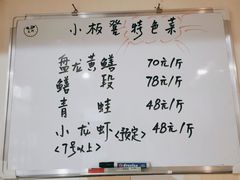 小板凳特色菜
盘龙黄鳝 70元/斤
鳝段 78元/斤
青蛙 48元/斤
小龙虾<预定> 48元/斤
<7号以上>